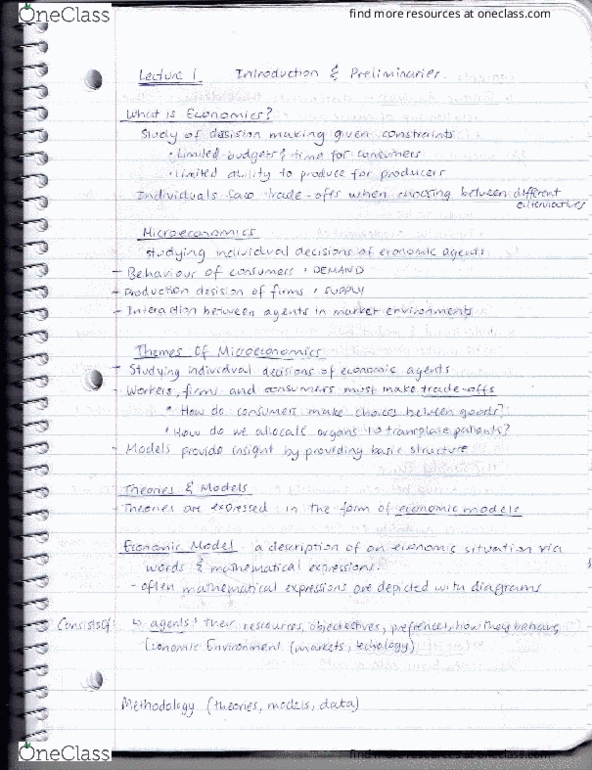 OneClass
find more resources at oneclass.com
Lecture 1 Introduction & Preliminaries.
What is Economics?
Study of decision making given constraints
• Limited budgets & time for consumers
• Limited ability to produce for producers
Individuals face trade-offs when choosing between different
alternatives
Microeconomics
studying individual decisions of economic agents
- Behaviour of consumers • DEMAND
- Production decision of firms • SUPPLY
- Interaction between agents in market environments
Themes Of Microeconomics
- Studying individual decisions of economic agents
- Workers, firms and consumers must make trade-offs
• How do consumers make choices between goods?
• How do we allocate organs to transplate patients?
- Models provide insight by providing basic structure
Theories & Models
- Theories are expressed in the form of economic models
Economic Model a description of an economic situation via
words & mathematical expressions.
- often mathematical expressions are depicted with diagrams
Consists of: ↳ agents: their resources, objectectives, preferences, how they behave,
Economic Environment (markets, techology)
Methodology (theories, models, data)
OneClass
find more resources at oneclass.com